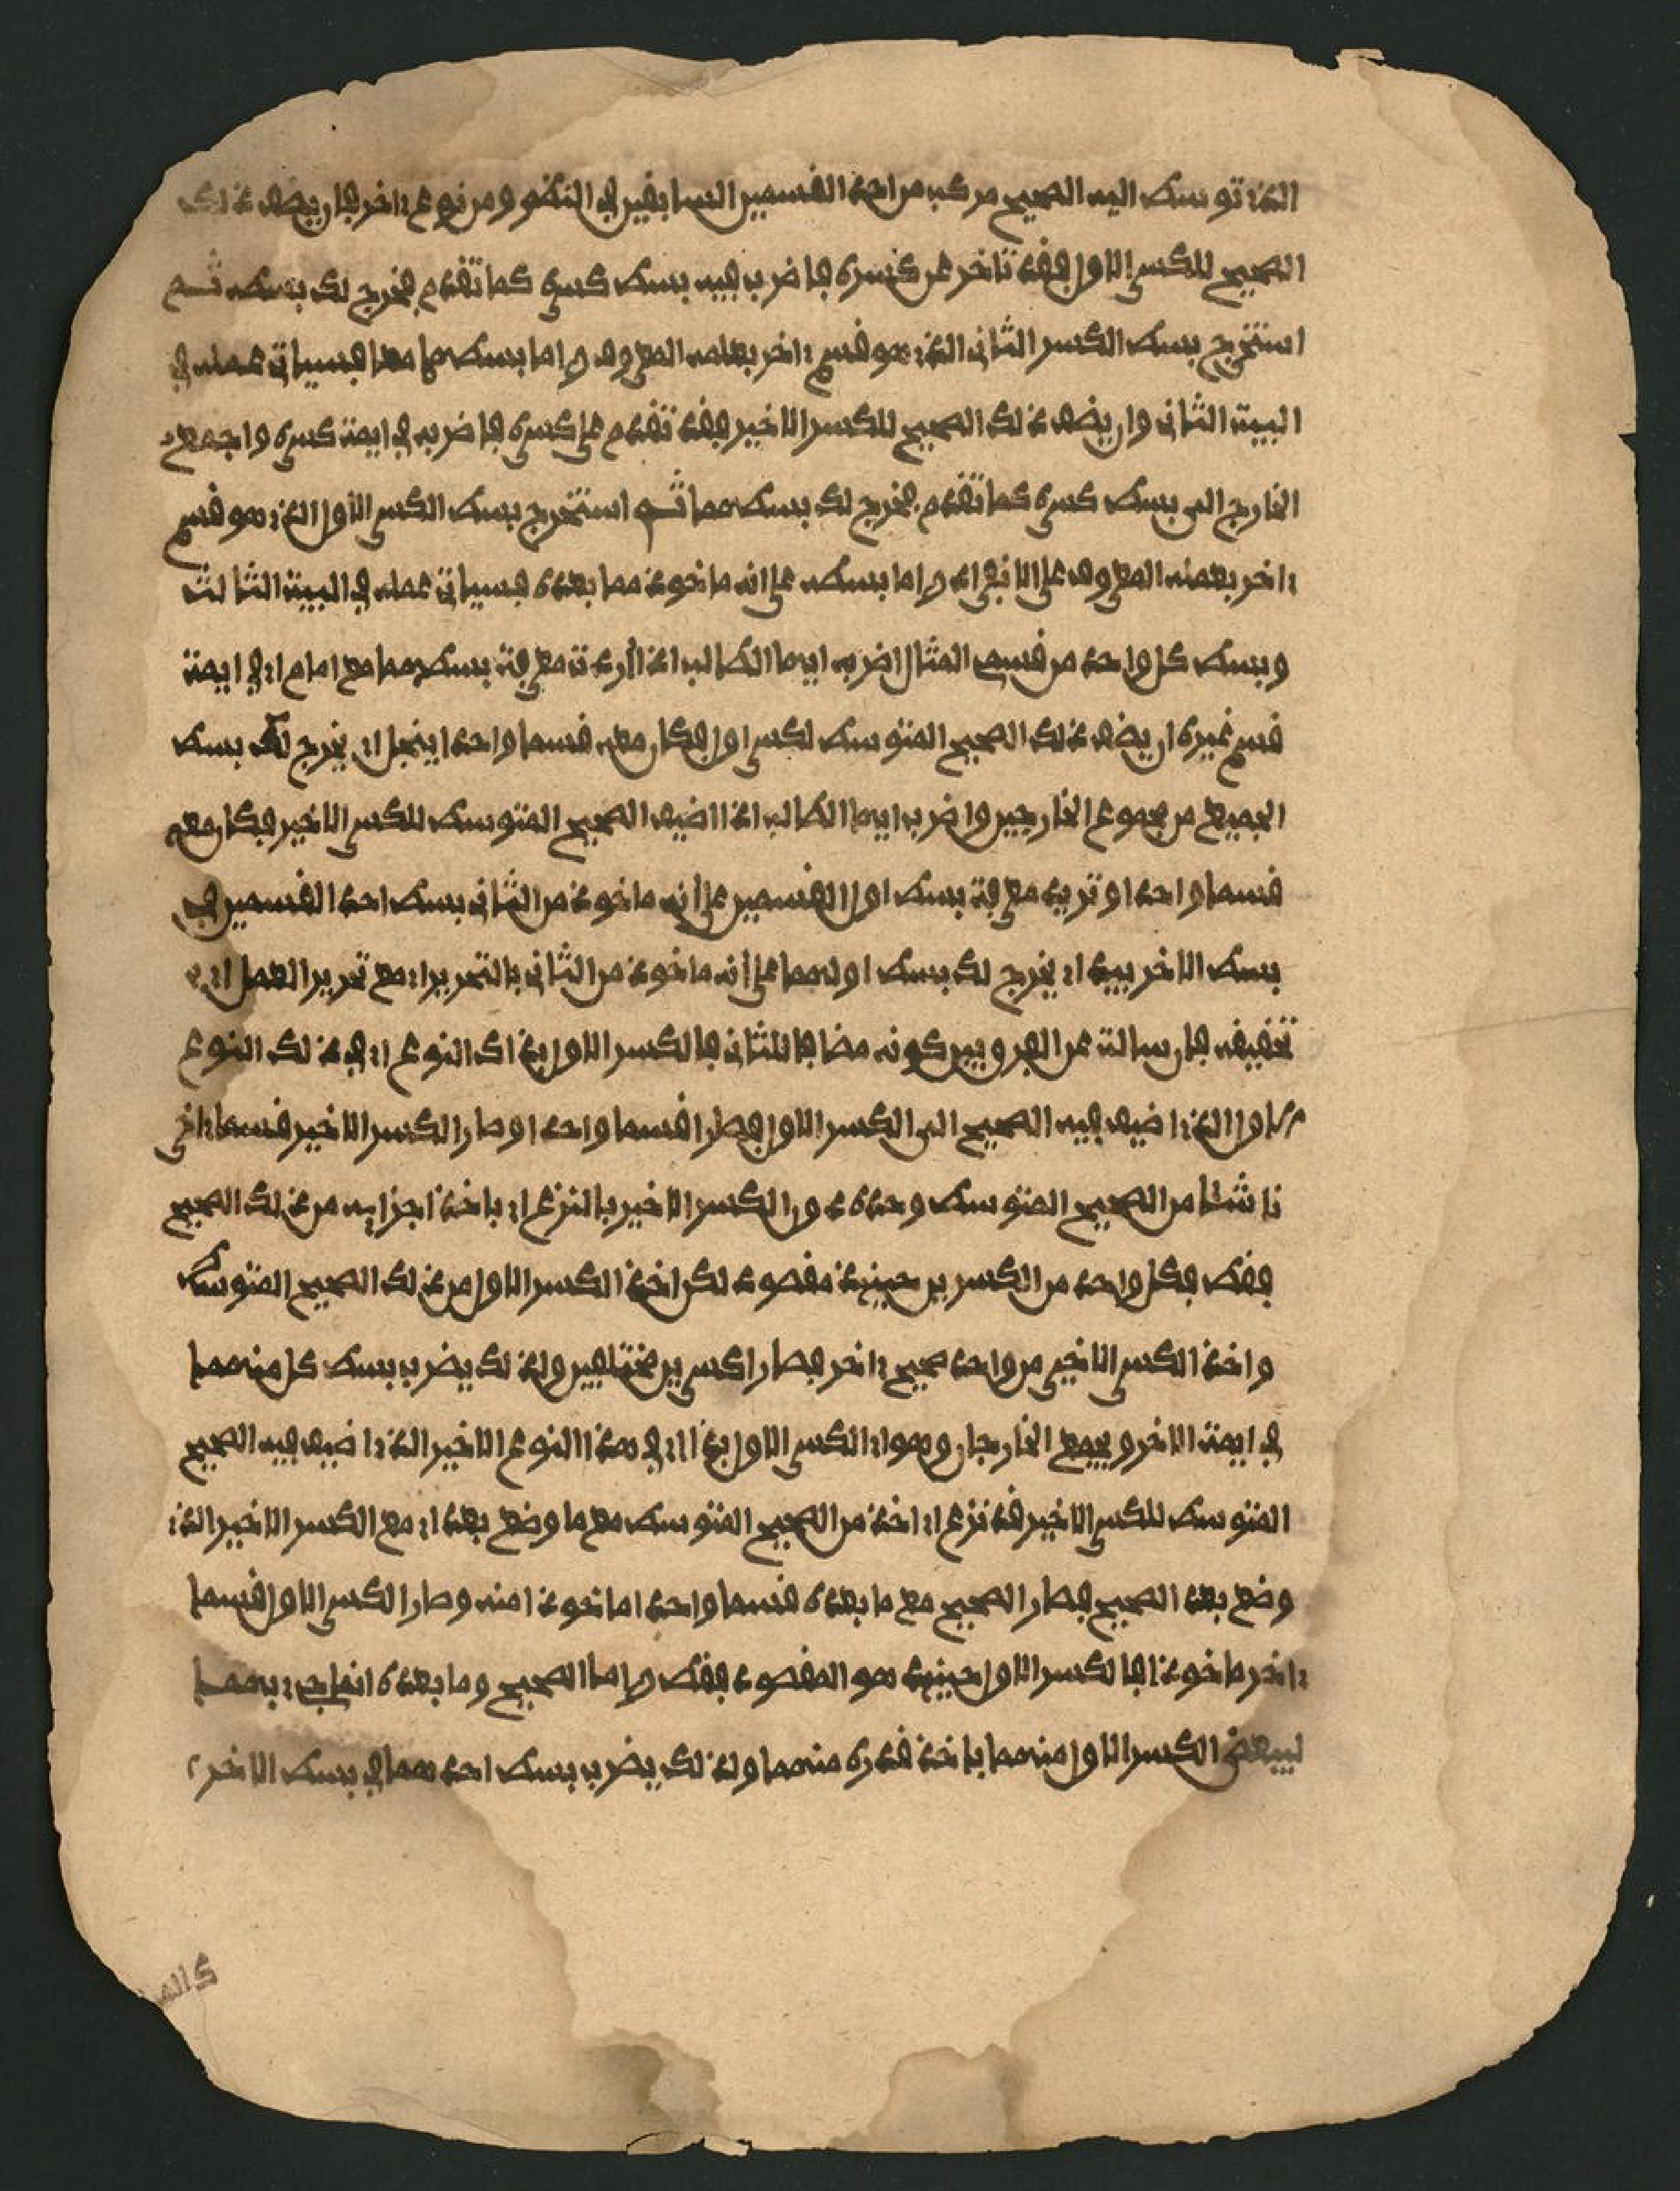 الذي توسط اليه الصحيح مركب من احد القسمين السابقين في النظم ومن نوع اخر فان يضف ذلك
الصحيح للكسر الاول فقد تاخر عن كسره فاضرب فيه بسط كسره كما تقدم فيخرج لك بسطه ثم
استخرج بسط الكسر الثاني الذي هو قسم اخر بعلمه المعروف واما بسطهما معا فسياتي عمله في
البيت الثاني وان يضف ذلك الصحيح للكسر الاخير فقد تقدم على كسره فاضربه في ايمة كسره واجمع
الخارج الى بسط كسره كما تقدم فيخرج لك بسطهما ثم استخرج بسط الكسر الاول الذي هو قسم
اخر بعمله المعروف على الانفراد واما بسطه على انه ماخوذ مما بعده فسياتي عمله في البيت الثالث
وبسط كل واحد من قسمي المثال اضربه ايها الطالب اذا اردت معرفة بسطهما مع امام اي في ايمة
قسم غيره ان يضف ذلك الصحيح المتوسط لكسر اول فكان معه قسما واحدا ينجل اي يخرج لك بسط
الجميع من مجموع الخارجين واضرب ايها الطالب اذا اضيف الصحيح المتوسط للكسر الاخير فكان معه
قسما واحدا وتريد معرفة بسط اول القسمين على انه ماخوذ من الثاني بسط احد القسمين في
بسط الاخر يبد اي يخرج لك بسط اولهما على انه ماخوذ من الثاني بالتحرير اي مع تحرير العمل اي
تخفيفه فان سالت عن الفرق بين كونه مضافا للثاني فالكسر الاول بذاك النوع اي في ذلك النوع
الاول الذي اضيف فيه الصحيح الى الكسر الاول فصارا قسما واحدا وصار الكسر الاخير قسما اخر
ناشئا من الصحيح المتوسط وحده دون الكسر الاخير بالنزع اي باخذ اجزايه من ذلك الصحيح
فقط فكل واحد من الكسرين حينيذ مقصود لكن اخذ الكسر الاول من ذلك الصحيح المتوسط
واخذ الكسر الاخير من واحد صحيح اخر فصارا كسرين مختلفين ولذلك يضرب بسط كل منهما
في ايمة الاخر ويجمع الخارجان وهو اي الكسر الاول بذا اي في هذا النوع الاخير الذي اضيف فيه الصحيح
المتوسط للكسر الاخير قد نزع اي اخذ من الصحيح المتوسط مع ما وضع بعد اي مع الكسر الاخير الذي
وضع بعد الصحيح فصار الصحيح مع ما بعده قسما واحدا ماخوذا منه وصار الكسر الاول قسما
اخر ماخوذا فالكسر الاول حينيذ هو المقصود فقط واما الصحيح وما بعده انما جيء بهما
ليبعض الكسر الاول منهما باخذ قدره منهما ولذلك يضرب بسط احدهما في بسط الاخر